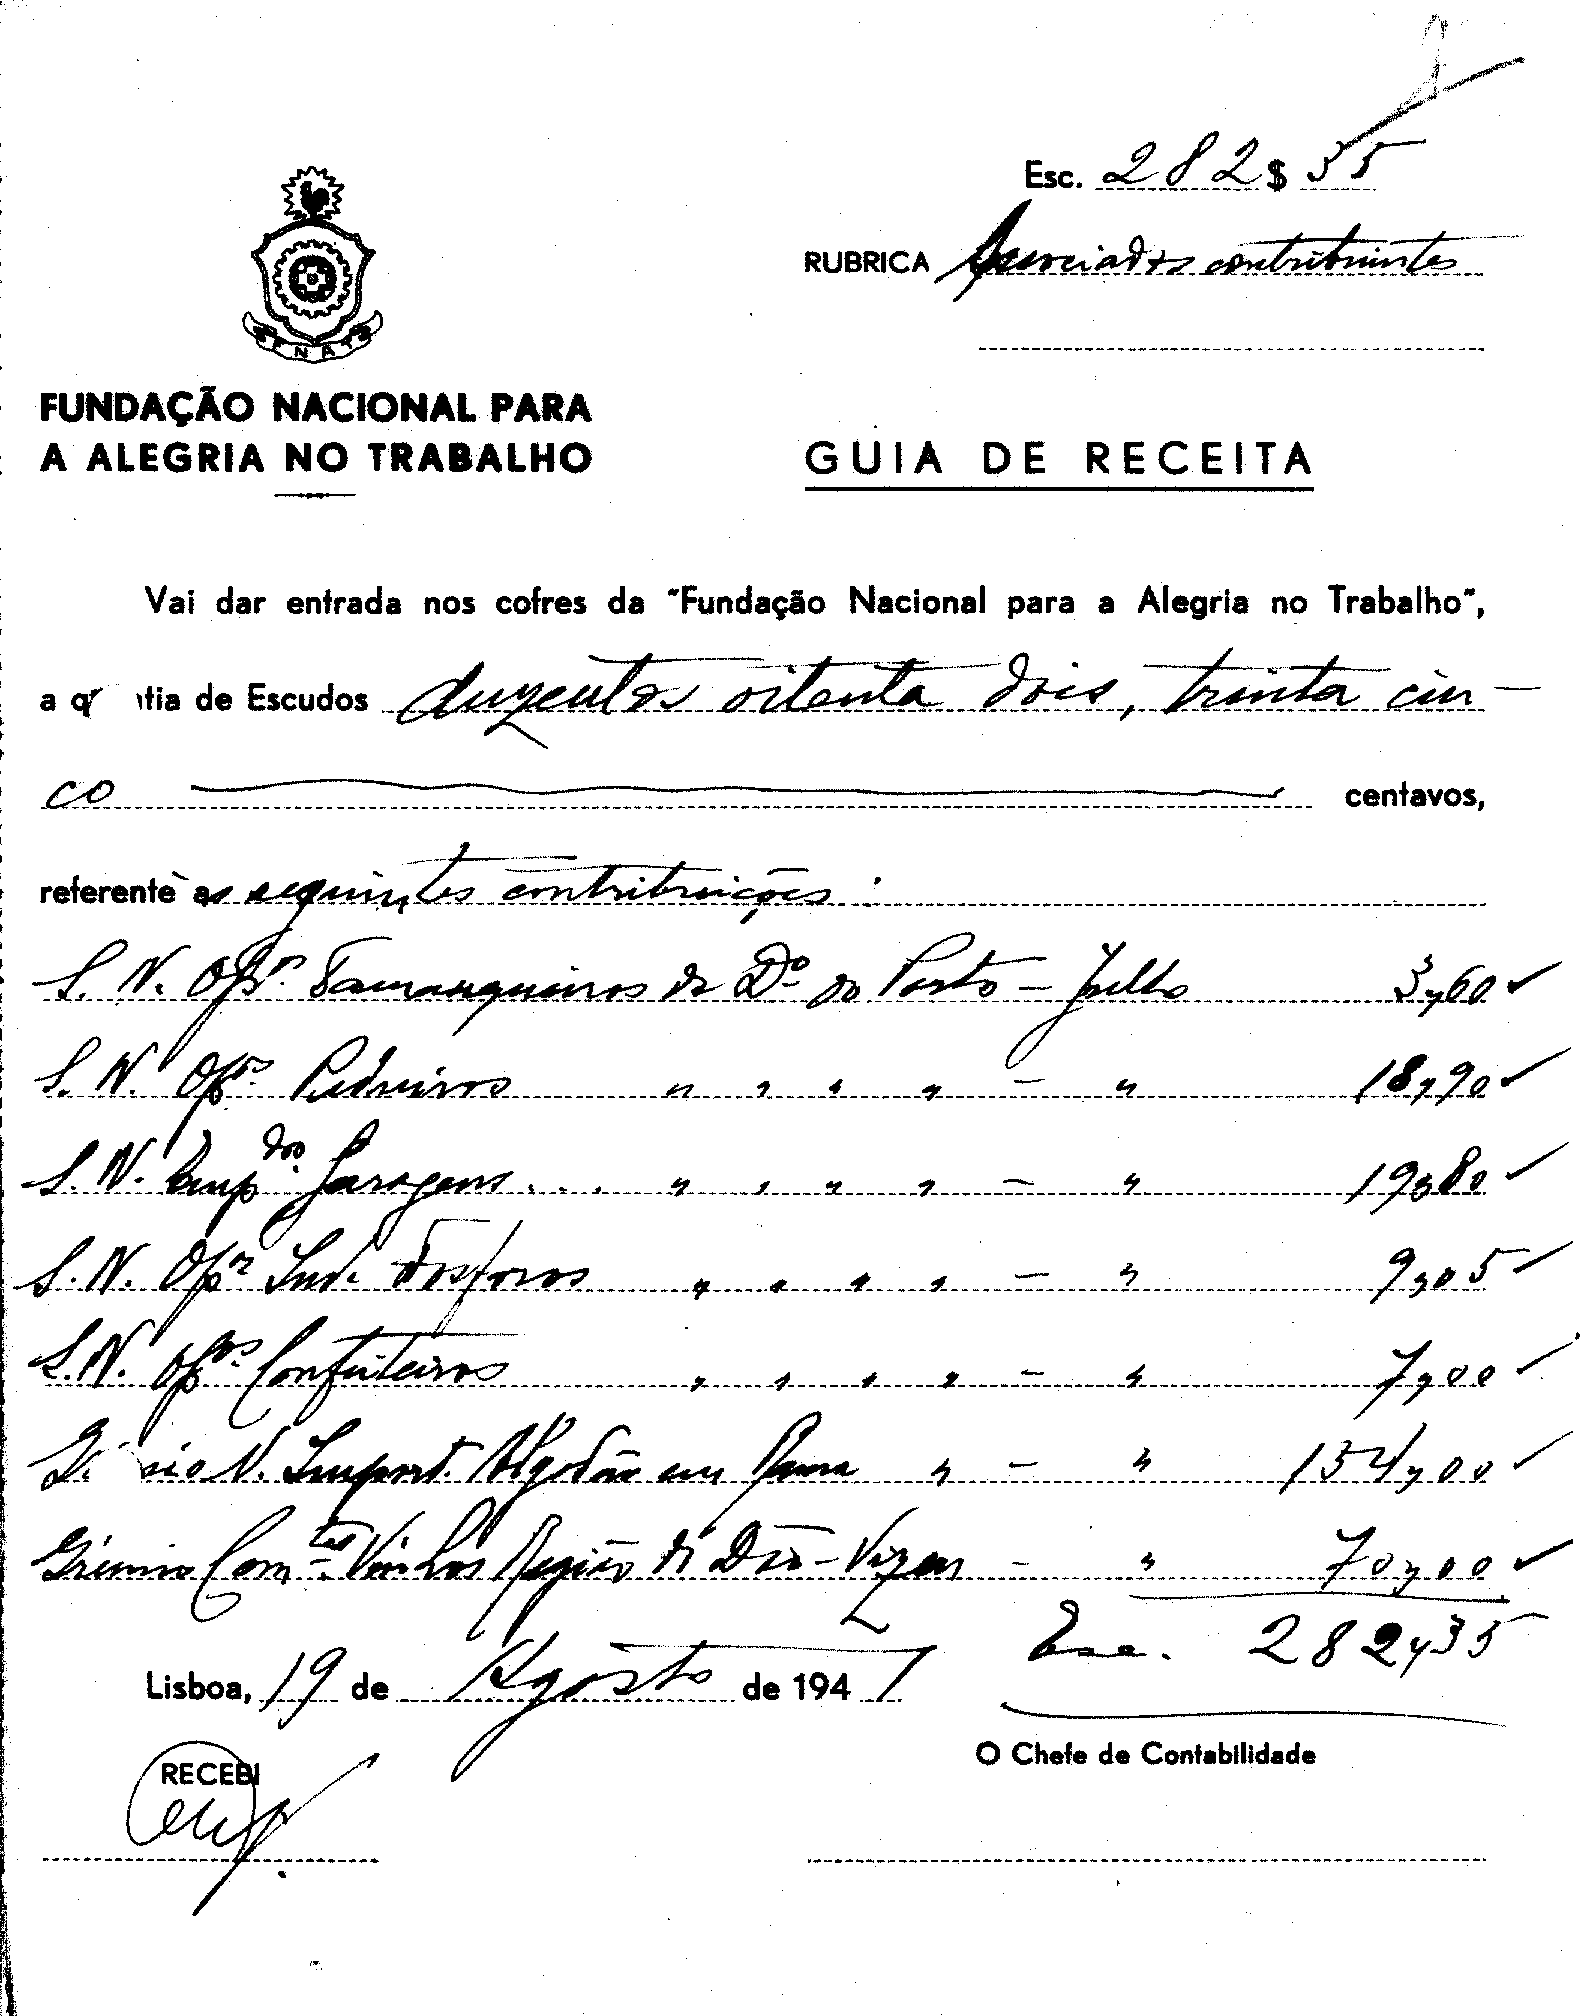 Esc. 282 $ 35
RUBRICA Associados contribuintes
FNAT
FUNDAÇÃO NACIONAL PARA
A ALEGRIA NO TRABALHO
GUIA DE RECEITA
Vai dar entrada nos cofres da "Fundação Nacional para a Alegria no Trabalho",
a q tia de Escudos duzentos oitenta dois, trinta cin-
co centavos,
referente as seguintes contribuições:
S. N. Opr. Tamanqueiros do Dº do Porto - Julho 3,60
S. N. Opos. Pedreiros " " " " - " 18,90
S. N. Emp dos. Garagens ... " " " " - " 19,80
S. N. Opr Ind. Fosforos " " " " - " 9,05
S. N. Opos. Confeiteiros " " " " - " 7,00
N. Import. Algodão em Rama " - " 154,00
Grémio Com.tes Vinhos Região do Dão - Vizeu - " 70,00
Esc. 282,35
Lisboa, 19 de Agosto de 1941
O Chefe de Contabilidade
RECEBI